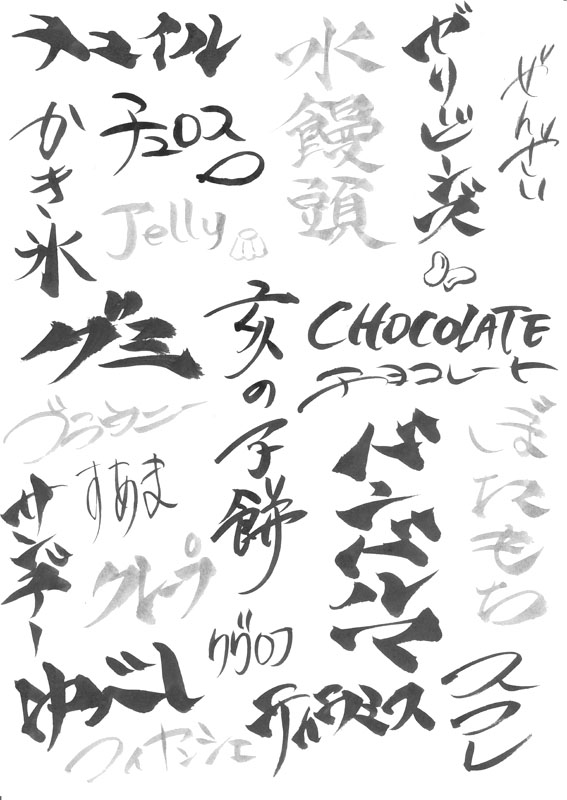 チュイル
水饅頭
ぜんざい
かき氷
チュロス
Jelly
グミ
亥の子餅
CHOCOLATE
チョコレート
ブラウニー
すあま
ぼたもち
サンデー
クレープ
クグロフ
ゆべし
フィナンシェ
ティラミス
スフレ